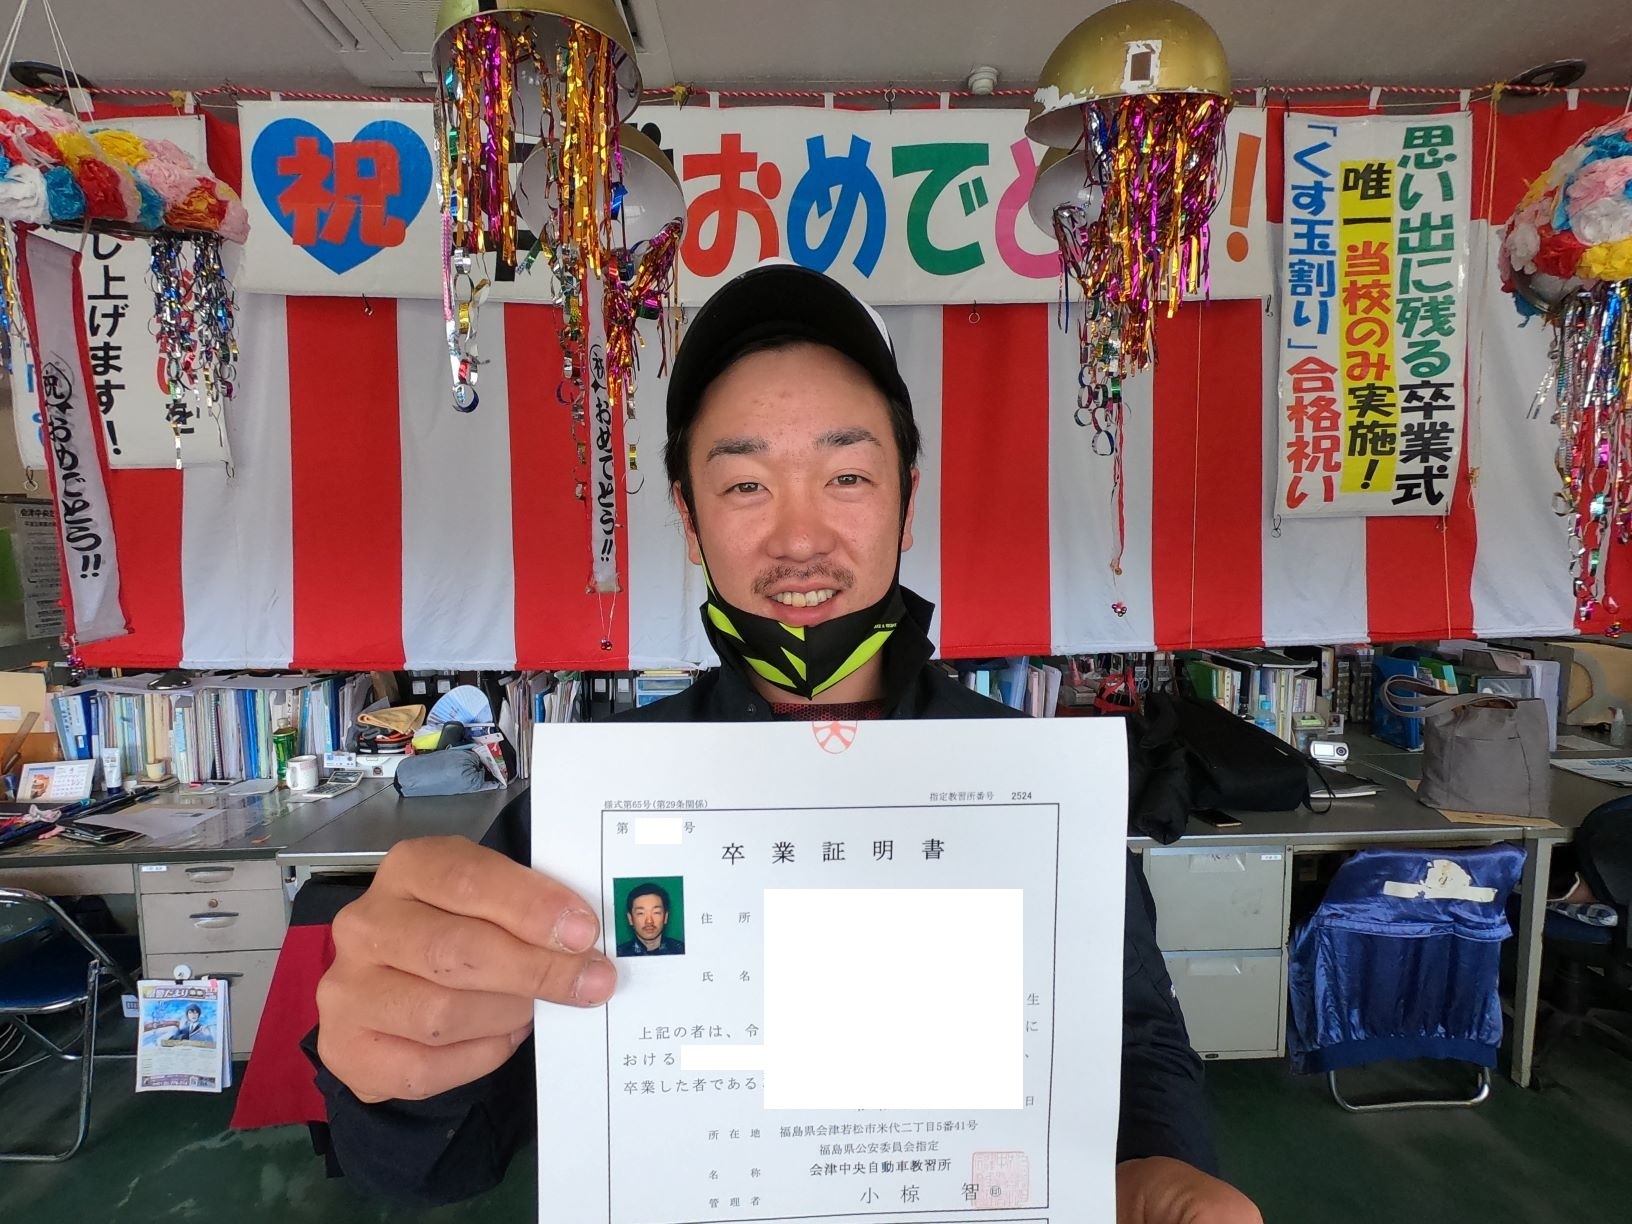 祝
おめでと
!
思い出に残る卒業式
唯一当校のみ実施!
「くす玉割り」合格祝い
し上げます!
を
祝
おめでとう!!
祝
おめでとう!!
会津中央
様式第65号(第29条関係)
指定教習所番号 2524
第 号
卒業証明書
住所
氏名
生
上記の者は、令 に
おける 、
卒業した者である
日
所在地 福島県会津若松市米代二丁目5番41号
福島県公安委員会指定
名称 会津中央自動車教習所
管理者 小椋 智 ㊞